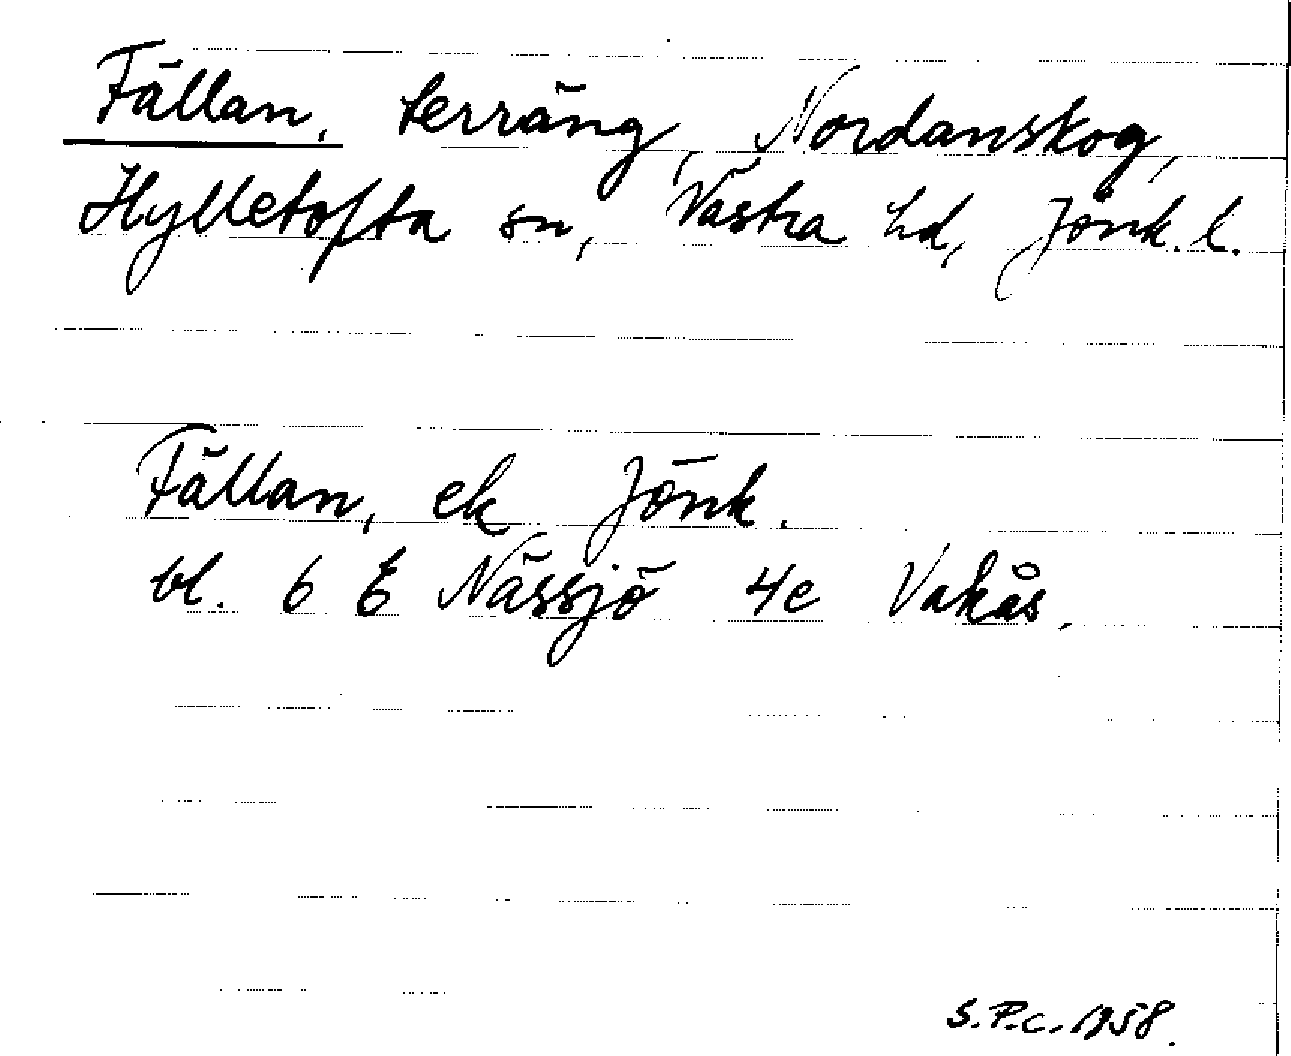 Fällan, terräng, Nordanskog,
Hylletofta sn, Västra hd, Jönk. l.
Fällan, ek Jönk.
bl. 6 E Nässjö 4e Vakås.
S.P.C. 1958.